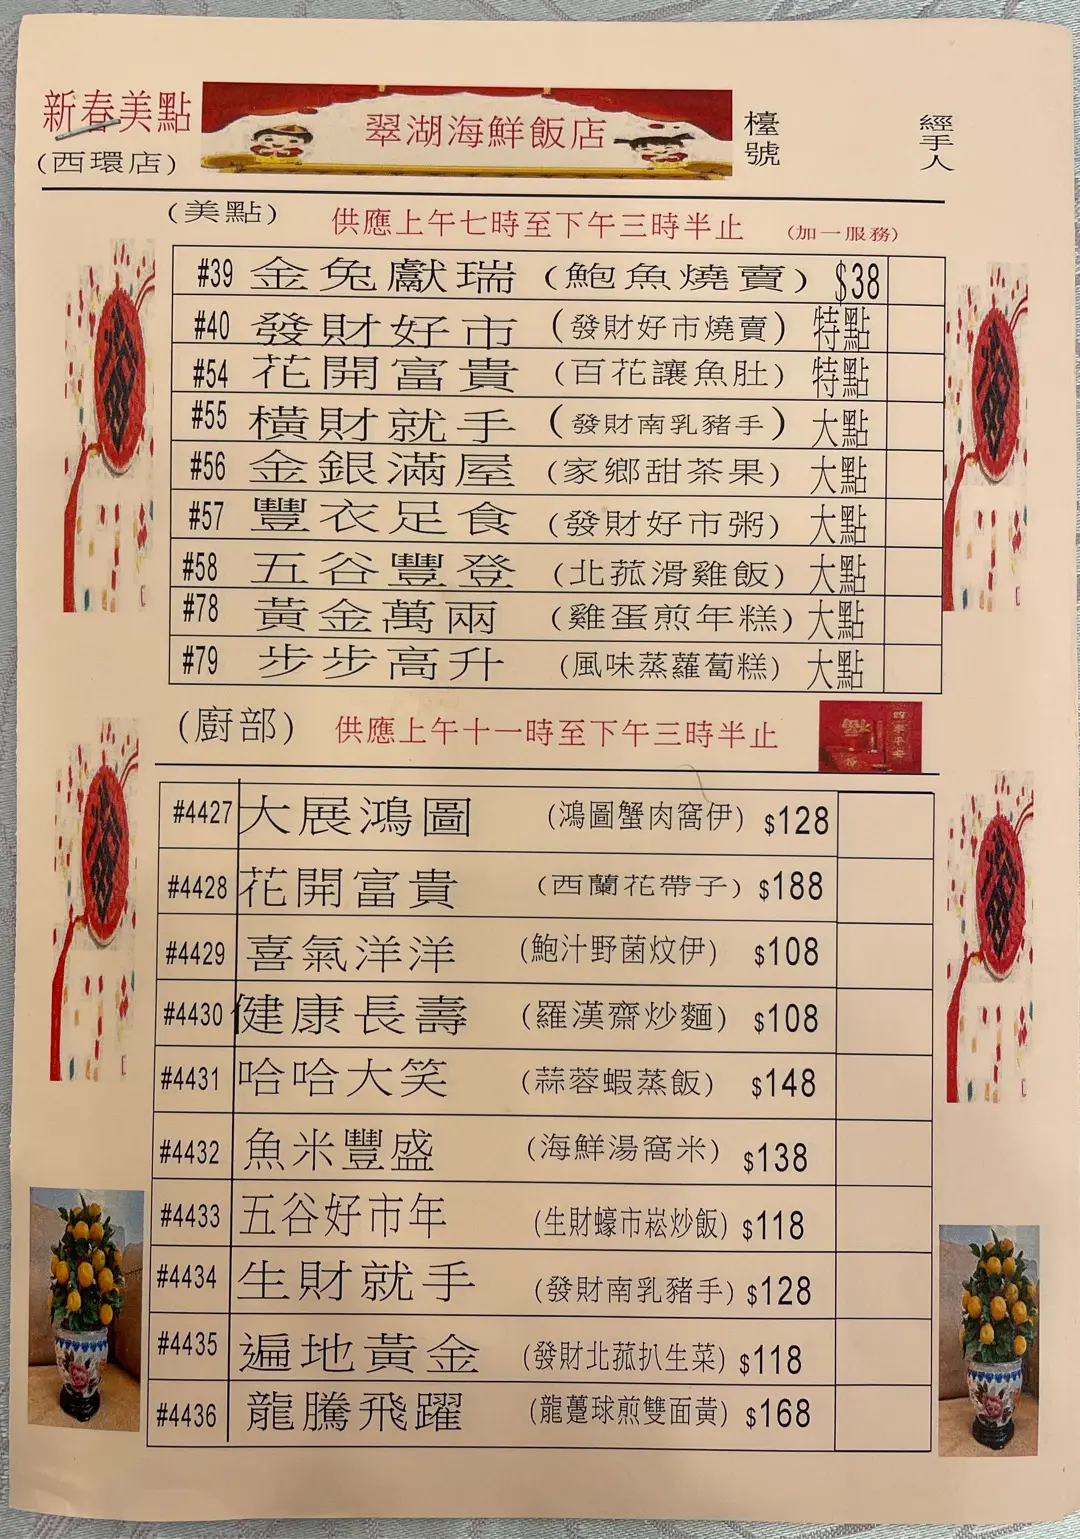 新春美點 翠湖海鮮飯店 檯號 經手人
(西環店)
(美點) 供應上午七時至下午三時半止 (加一服務)
#39 金兔獻瑞 (鮑魚燒賣) $38
#40 發財好市 (發財好市燒賣) 特點
#54 花開富貴 (百花讓魚肚) 特點
#55 橫財就手 (發財南乳豬手) 大點
#56 金銀滿屋 (家鄉甜茶果) 大點
#57 豐衣足食 (發財好市粥) 大點
#58 五谷豐登 (北菰滑雞飯) 大點
#78 黃金萬兩 (雞蛋煎年糕) 大點
#79 步步高升 (風味蒸蘿蔔糕) 大點
(廚部) 供應上午十一時至下午三時半止
#4427 大展鴻圖 (鴻圖蟹肉窩伊) $128
#4428 花開富貴 (西蘭花帶子) $188
#4429 喜氣洋洋 (鮑汁野菌炆伊) $108
#4430 健康長壽 (羅漢齋炒麵) $108
#4431 哈哈大笑 (蒜蓉蝦蒸飯) $148
#4432 魚米豐盛 (海鮮湯窩米) $138
#4433 五谷好市年 (生財蠔市崧炒飯) $118
#4434 生財就手 (發財南乳豬手) $128
#4435 遍地黃金 (發財北菰扒生菜) $118
#4436 龍騰飛躍 (龍躉球煎雙面黃) $168